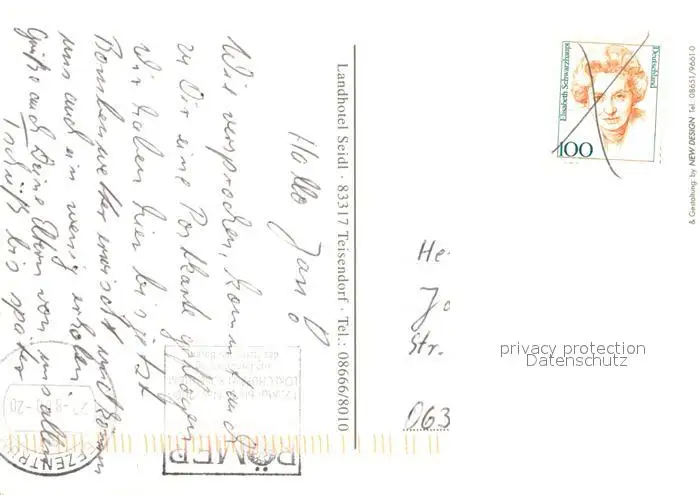 Hallo Jan!
Wie versprochen, kommt auch
zu Dir eine Postkarte geflogen
Wir haben hier bis jetzt
Bombenwetter erwischt und können
uns auch ein wenig erholen.
Grüße auch Deine Eltern von uns allen
Tschüß bis später
Landhotel Seidl · 83317 Teisendorf · Tel.: 08666/8010
Deutschland
Elisabeth Schwarzhaupt
100
& Gestaltung by NEW DESIGN Tel. 08651/9661 0
He
Jo
Str.
063
privacy protection
Datenschutz
RÖMER
EZENTR